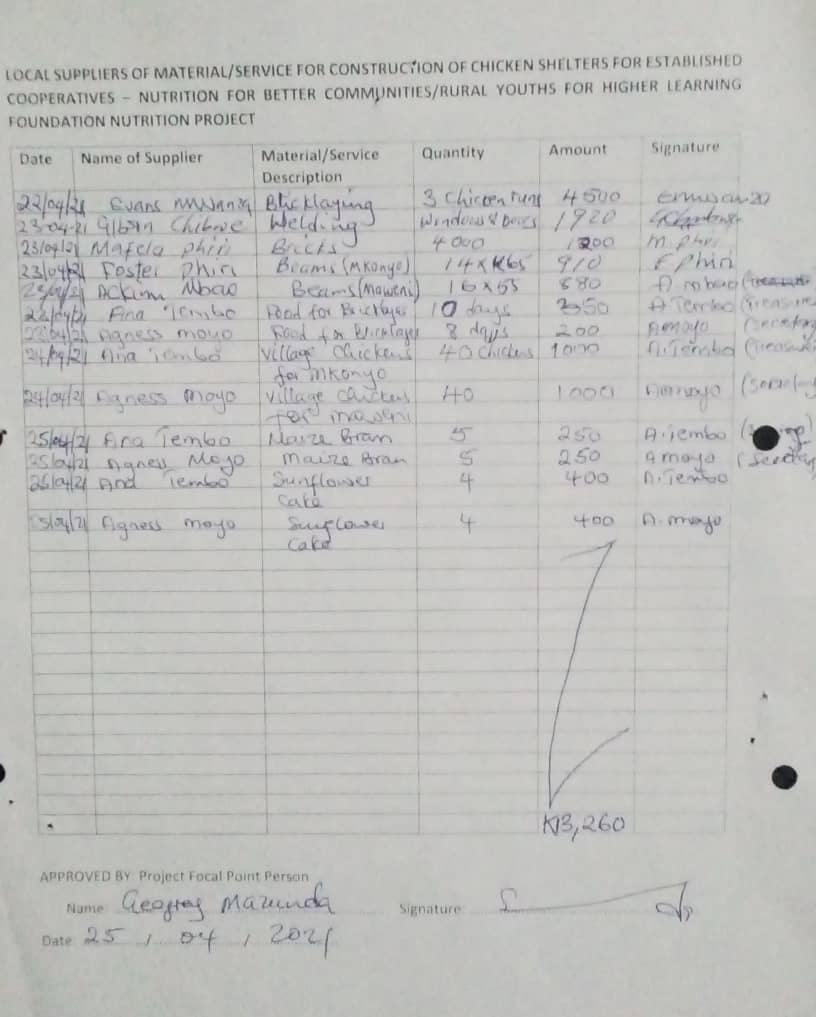 LOCAL SUPPLIERS OF MATERIAL/SERVICE FOR CONSTRUCTION OF CHICKEN SHELTERS FOR ESTABLISHED
COOPERATIVES – NUTRITION FOR BETTER COMMUNITIES/RURAL YOUTHS FOR HIGHER LEARNING
FOUNDATION NUTRITION PROJECT
Date Name of Supplier Material/Service Description Quantity Amount Signature
22/04/21 Evans Mwanza Bricklaying 3 Chicken runs 4500
23-04-21 Chibwe Welding Windows & Doors 1920
23/04/21 Mafela Phiri Bricks 4000 1200 M. Phiri
23/04/21 Foster Phiri Beams (Mkonyo) 14 x K65 910 F Phiri
Ackim Mbao Beams (Maweni) 16 x 55 880 A mbao
Ana Tembo Food for Bricklayer 10 days 250 A Tembo (Treasure
Agness moyo Food for Bricklayer 8 days 200 A moyo (Secretary
24/04/21 Ana Tembo Village Chickens 40 Chickens 1000 A. Tembo (Treasure
for mkonyo
24/04/21 Agness moyo Village Chickens 40 1000 A. moyo
for maweni
25/04/21 Ana Tembo Maize Bran 5 250 A. Tembo
25/04/21 Agness Moyo Maize Bran 5 250 A moyo (Secretary
25/04/21 Ana Tembo Sunflower 4 400 A. Tembo
cake
25/04/21 Agness moyo Sunflower 4 400 A. moyo
cake
K13,260
APPROVED BY: Project Focal Point Person
Name Geofrey Mazunda Signature:
Date 25 / 04 / 2021